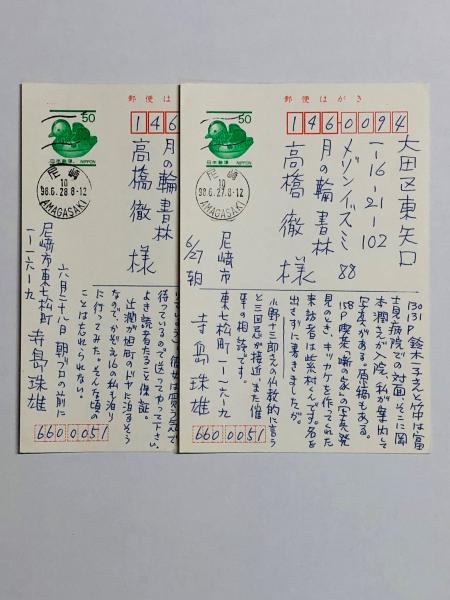 郵便はがき
50
日本郵便
NIPPON
尼崎
10
98.6.27.8-12
AMAGASAKI
1460094
大田区東矢口
一-16-21-102
メゾンイズミ88
月の輪書林
高橋徹様
6/27朝
尼崎市
東七松町一-一六-九
寺島珠雄
6600051
130
131P 鈴木一子さんと竹中は富
士見病院での対面、そこに岡
本潤さんが入院、私が案内して
写真がある。原稿もある。
158P 喫茶「噛の家」の写真発
見のとき、キッカケを作ってくれた
来訪者は柴系村くんです。名を
出さずに書きましたが。
小野十三郎さんの仏教的に言う
と三回忌が接近、また催
事の相談です。
郵便は
50
日本郵便
NIPPON
尼崎
10
98.6.28 8-12
AMAGASAKI
146
月の輪書林
高橋徹様
尼崎市東七松町
一-一六-九
寺島珠雄
6600051
六月二十八日 朝フロの前に
彼女は買う気で
待っているので送ってやって下さい。
よき読者たること保証。
辻潤が旭町のドヤに泊るそう
なので、かぞえ16の私も泊り
に行ってみた。そんな頃の
ことは忘れられない。